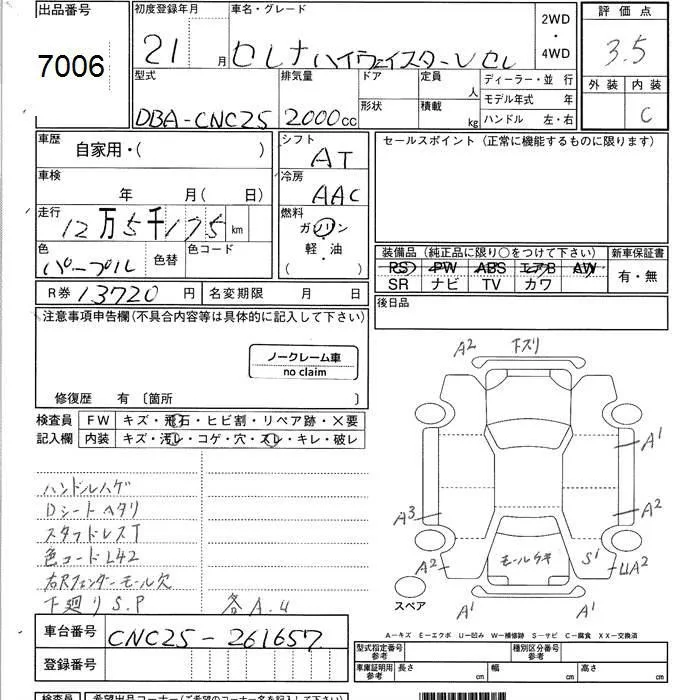 出品番号
7006
初度登録年月
21 月
車名・グレード
セレナ ハイウェイスターVセレ
2WD
・
4WD
評価点
3.5
外装 内装
C
型式
DBA-CNC25
排気量
2000cc
ドア
形状
定員 人
積載 kg
ディーラー・並 行
モデル年式 年
ハンドル 左・右
車歴
自家用・( )
シフト
AT
セールスポイント(正常に機能するものに限ります)
車検
年 月( 日)
冷房
AAC
走行
12万5千175km
燃料
ガソリン
軽・油
( )
色
パープル
色替
色コード
装備品(純正品に限り○をつけて下さい)
PS PW ABS エアB AW
SR ナビ TV カワ
新車保証書
有・無
R券 13720円
名変期限 月 日
後日品
注意事項申告欄(不具合内容等は具体的に記入して下さい)
ノークレーム車
no claim
修復歴 有 〔箇所 〕
検査員
記入欄
FW キズ・飛石・ヒビ割・リペア跡・×要
内装 キズ・汚レ・コゲ・穴・スレ・キレ・破レ
ハンドルハゲ
Dシートヘタリ
スタッドレスT
色コードL42
右Rフェンダーモール欠
下廻りS.P
各A.U
A2 下スリ
A1
A3
A2
A2
モールキキ
S1
UA2
A1
A1
スペア
車台番号
CNC25-261657
登録番号
A-キズ E-エクボ U-凹み W-補修跡 S-サビ C-腐食 XX-交換済
型式指定番号
参考
種別区分番号
参考
車庫証明用
参考
長さ cm
幅 cm
高さ cm
検査員
希望出品コーナー(ご希望のコーナー名を記入して下さい)